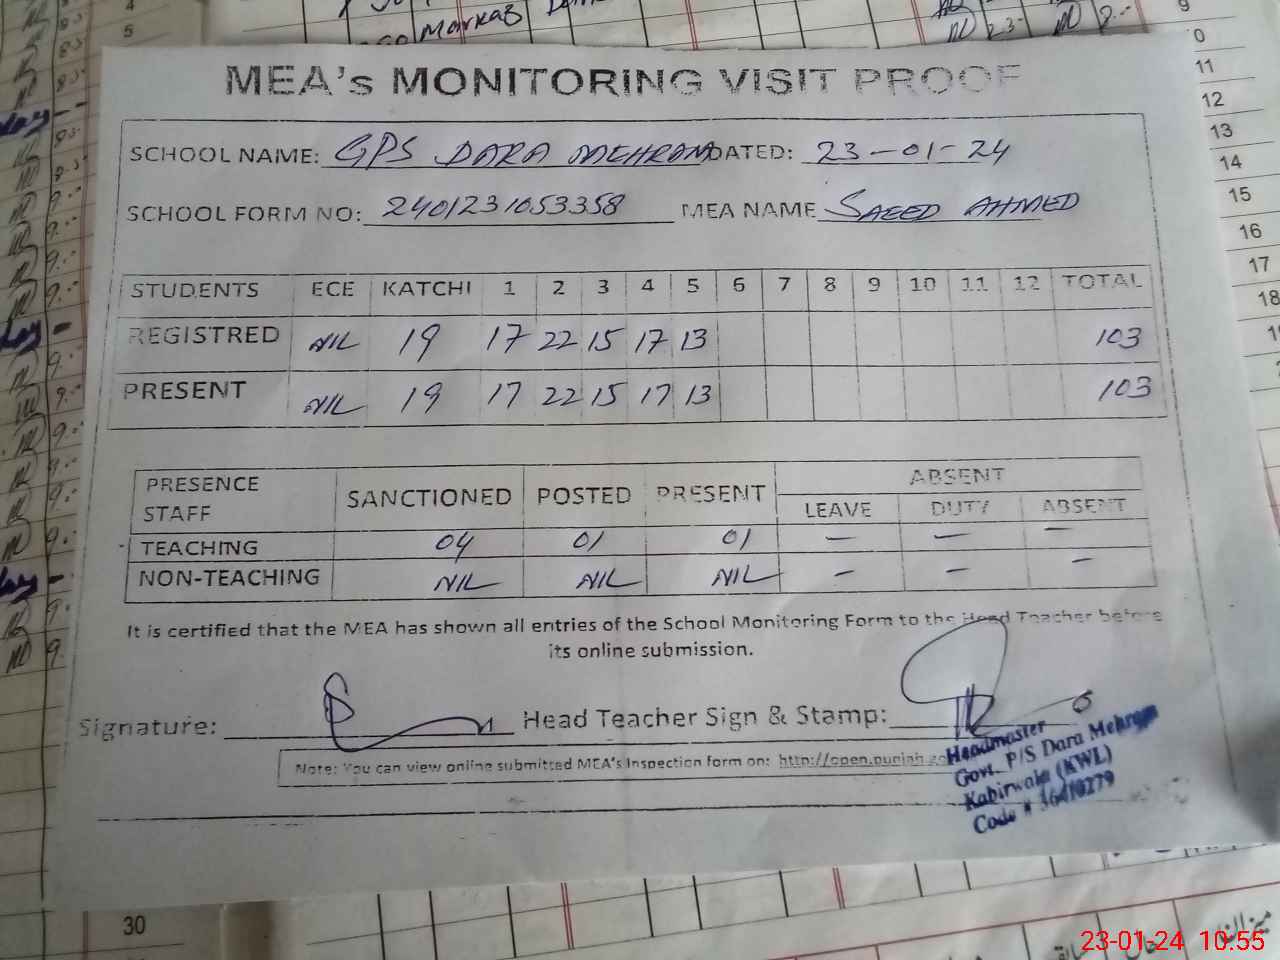 Markaz
MEA's MONITORING VISIT PROOF
SCHOOL NAME: GPS DARA MEHRAM DATED: 23-01-24
SCHOOL FORM NO: 2401231053358 MEA NAME SAEED AHMED
STUDENTS ECE KATCHI 1 2 3 4 5 6 7 8 9 10 11 12 TOTAL
REGISTRED NIL 19 17 22 15 17 13 103
PRESENT NIL 19 17 22 15 17 13 103
PRESENCE STAFF SANCTIONED POSTED PRESENT ABSENT
LEAVE DUTY ABSENT
TEACHING 04 01 01 — — —
NON-TEACHING NIL NIL NIL — — —
It is certified that the MEA has shown all entries of the School Monitoring Form to the Head Teacher before
its online submission.
Signature: Head Teacher Sign & Stamp:
Note: You can view online submitted MEA's Inspection form on: http://open.punjab.go
Headmaster
Govt. P/S Dara Mehram
Kabirwala (KWL)
Code #
4
5
9
10
11
12
13
14
15
16
17
18
30
23-01-24 10:55